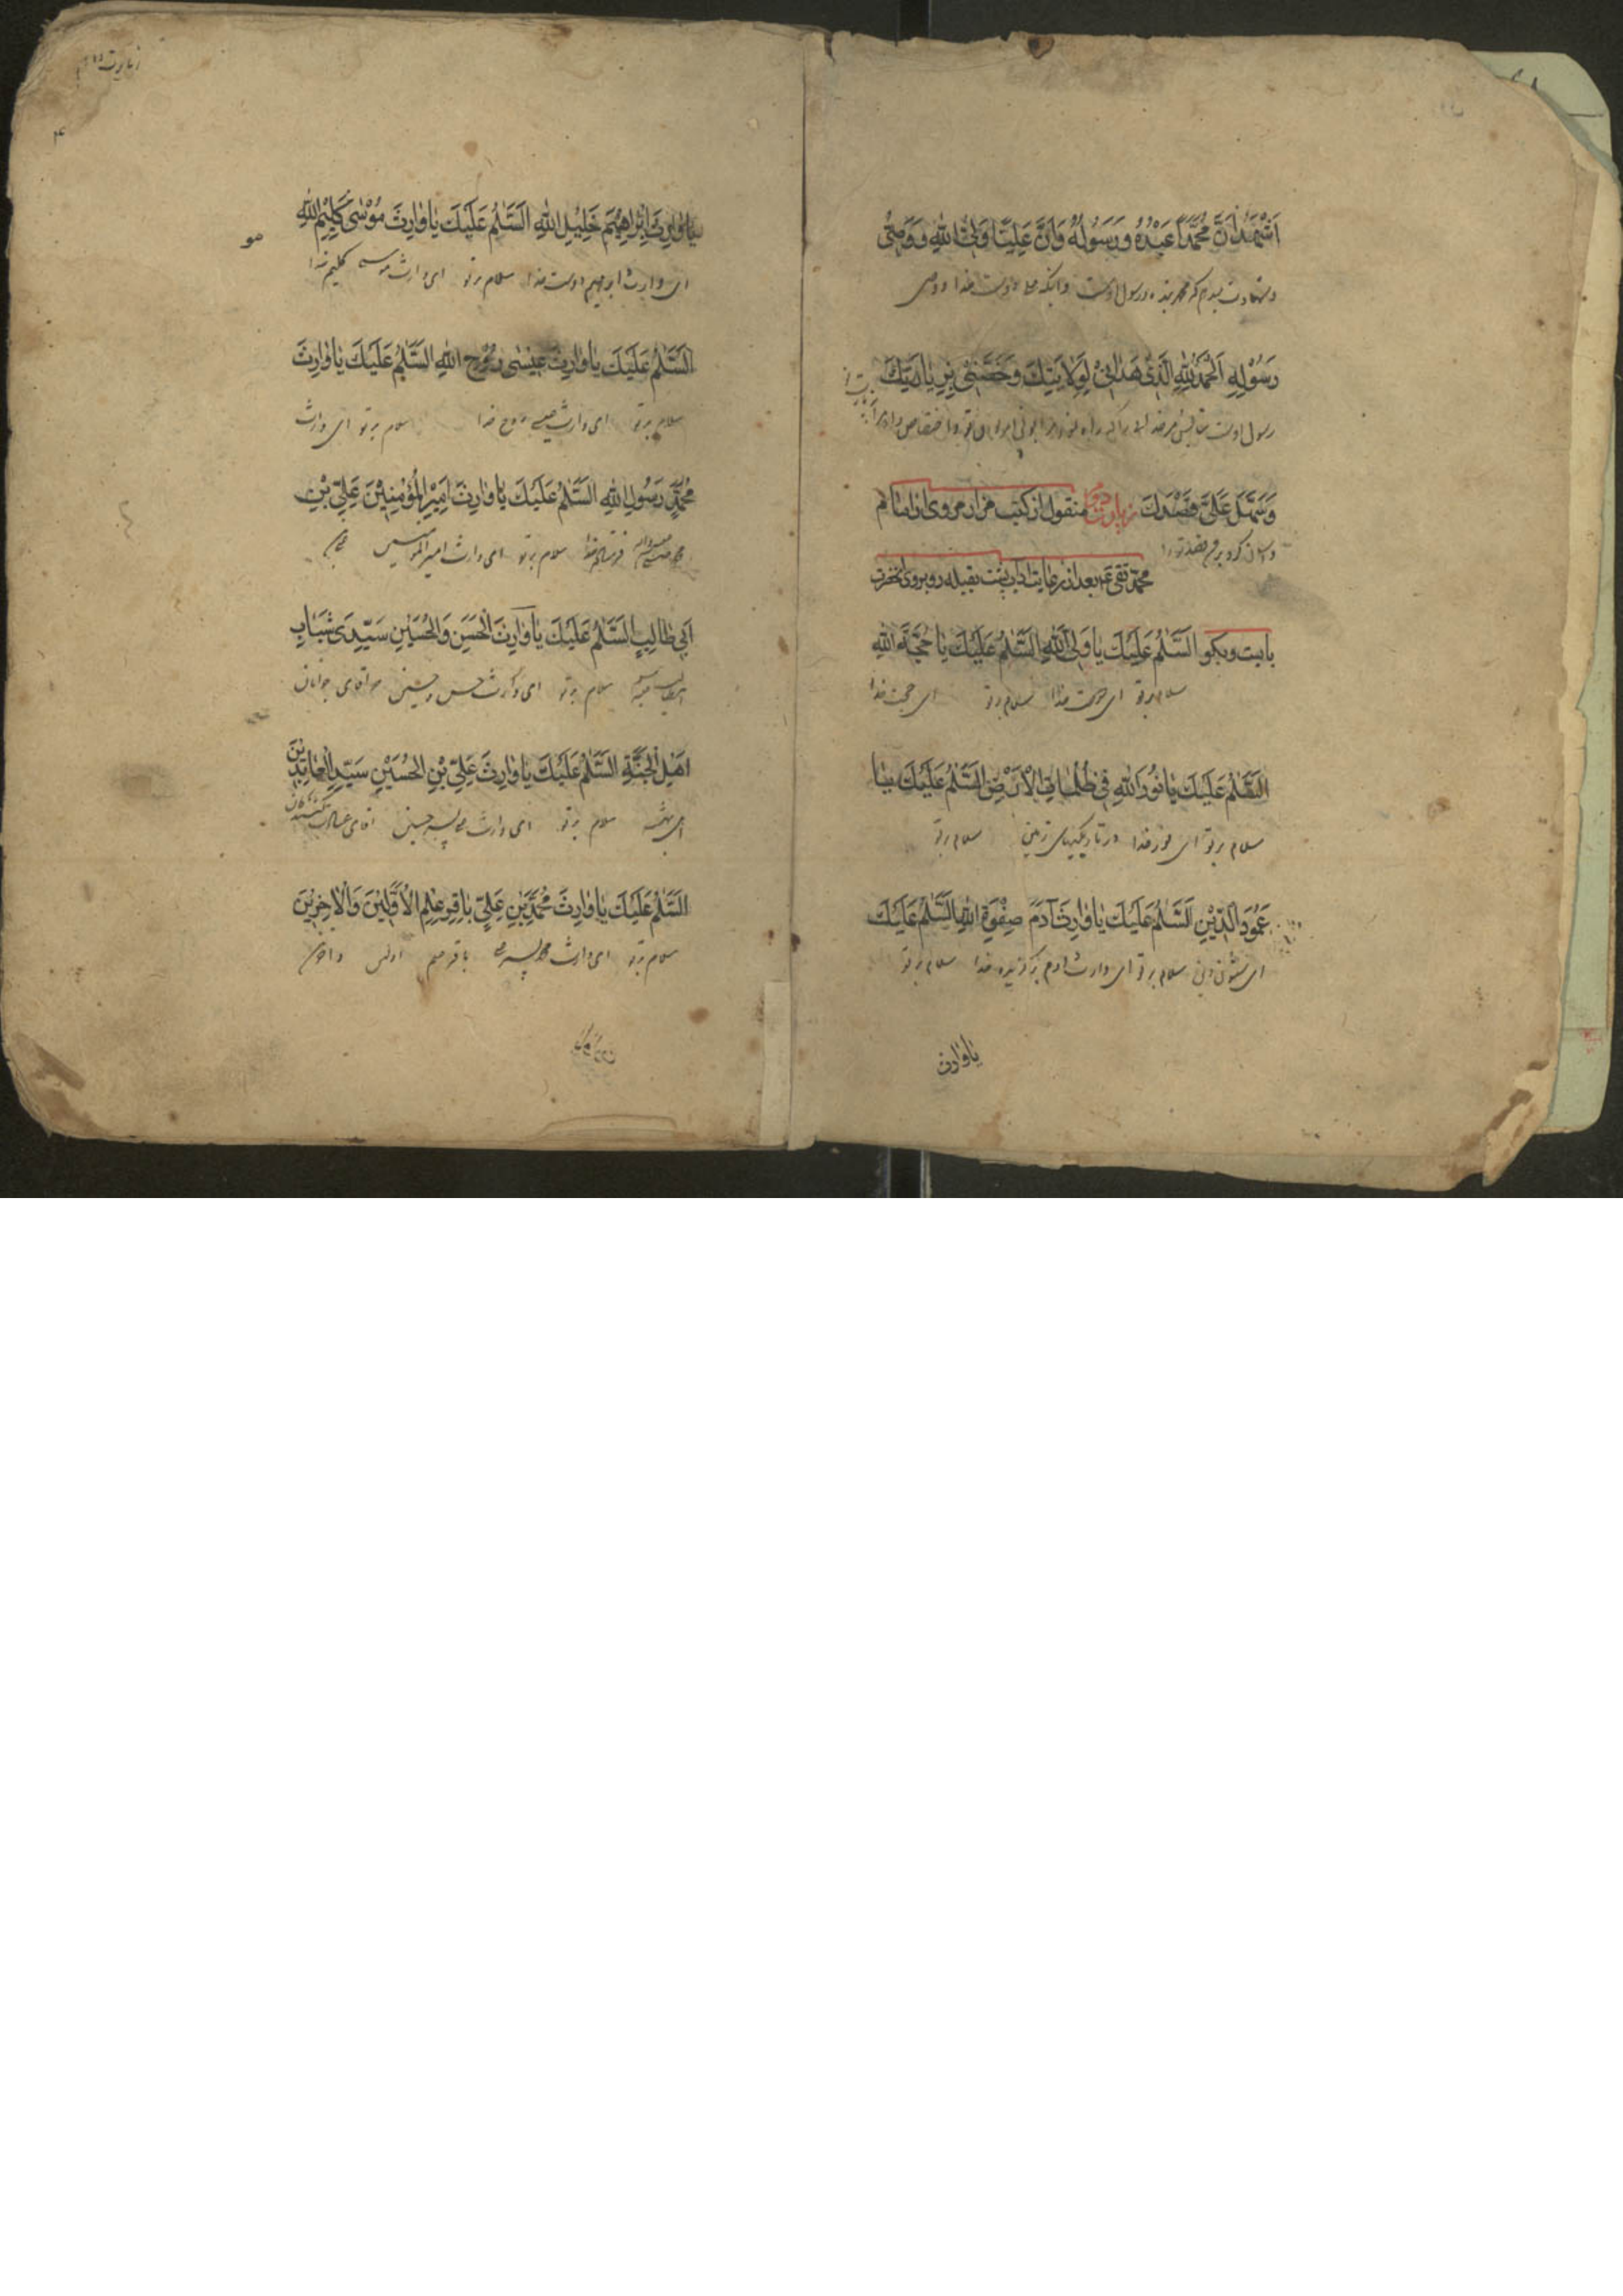 اَشْهَدُ اَنَّ مُحَمَّدًا عَبْدُهُ وَرَسُولُهُ وَاَنَّ عَلِيًّا وَلِيُّ اللهِ وَوَصِيُّ
وشهادت میدهم که محمد بنده ورسول اوست وانکه علی دوست خدا ووصی
رَسُوْلِهِ اَلْحَمْدُ لِلّٰهِ الَّذِىْ هَدٰانِىْ لِوَلاٰيَتِكَ وَخَصَّنِىْ بِزِيٰارَتِكَ
رسول اوست
وَسَهَّلَ عَلَىَّ قَصْدَكَ زیارت دوم منقول از کتب مزار مروی از امام
واسان کرد بر من قصد تو را
محمد تقی ع بعد از رعایت اداب پشت بقبله رو بروی انحضرت
بایست وبکو السَّلٰمُ عَلَيْكَ يٰا وَلِىَّ اللهِ السَّلٰمُ عَلَيْكَ يٰا حُجَّةَ اللهِ
سلام بر تو ای دوست خدا سلام بر تو ای حجت خدا
السَّلٰمُ عَلَيْكَ يٰا نُوْرَ اللهِ فِىْ ظُلُمٰاتِ الْاَرْضِ السَّلٰمُ عَلَيْكَ يٰا
سلام بر تو ای نور خدا در تاریکیهای زمین سلام بر تو
عَمُوْدَ الدِّيْنِ اَلسَّلٰمُ عَلَيْكَ يٰا وٰارِثَ اٰدَمَ صِفْوَةِ اللهِ السَّلٰمُ عَلَيْكَ
ای ستون دین سلام بر تو ای وارث ادم برگزیده خدا سلام بر تو
یا وارث
زیارت
۴
يٰا وٰارِثَ اِبْرٰاهِيْمَ خَلِيْلِ اللهِ اَلسَّلٰمُ عَلَيْكَ يٰا وٰارِثَ مُوْسٰى كَلِيْمِ اللهِ
ای وارث ابراهیم دوست خدا سلام بر تو ای وارث موسی کلیم خدا
اَلسَّلٰمُ عَلَيْكَ يٰا وٰارِثَ عِيْسٰى رُوْحِ اللهِ السَّلٰمُ عَلَيْكَ يٰا وٰارِثَ
سلام بر تو ای وارث عیسی روح خدا سلام بر تو ای وارث
مُحَمَّدٍ رَسُوْلِ اللهِ السَّلٰمُ عَلَيْكَ يٰا وٰارِثَ اَمِيْرِ الْمُؤْمِنِيْنَ عَلِىِّ بْنِ
محمد فرستاده خدا سلام بر تو ای وارث امیر المومنین علی بن
اَبِىْ طٰالِبٍ السَّلٰمُ عَلَيْكَ يٰا وٰارِثَ الْحَسَنِ وَالْحُسَيْنِ سَيِّدَىْ شَبٰابِ
ابیطالب سلام بر تو ای وارث حسن وحسین دو اقای جوانان
اَهْلِ الْجَنَّةِ السَّلٰمُ عَلَيْكَ يٰا وٰارِثَ عَلِىِّ بْنِ الْحُسَيْنِ سَيِّدِ الْعٰابِدِيْنَ
اهل بهشت سلام بر تو ای وارث علی پسر حسین اقای عبادت کنندکان
السَّلٰمُ عَلَيْكَ يٰا وٰارِثَ مُحَمَّدِ بْنِ عَلِىٍّ بٰاقِرِ عِلْمِ الْاَوَّلِيْنَ وَالْاٰخِرِيْنَ
سلام بر تو ای وارث محمد پسر علی باقر علم اولین واخرین